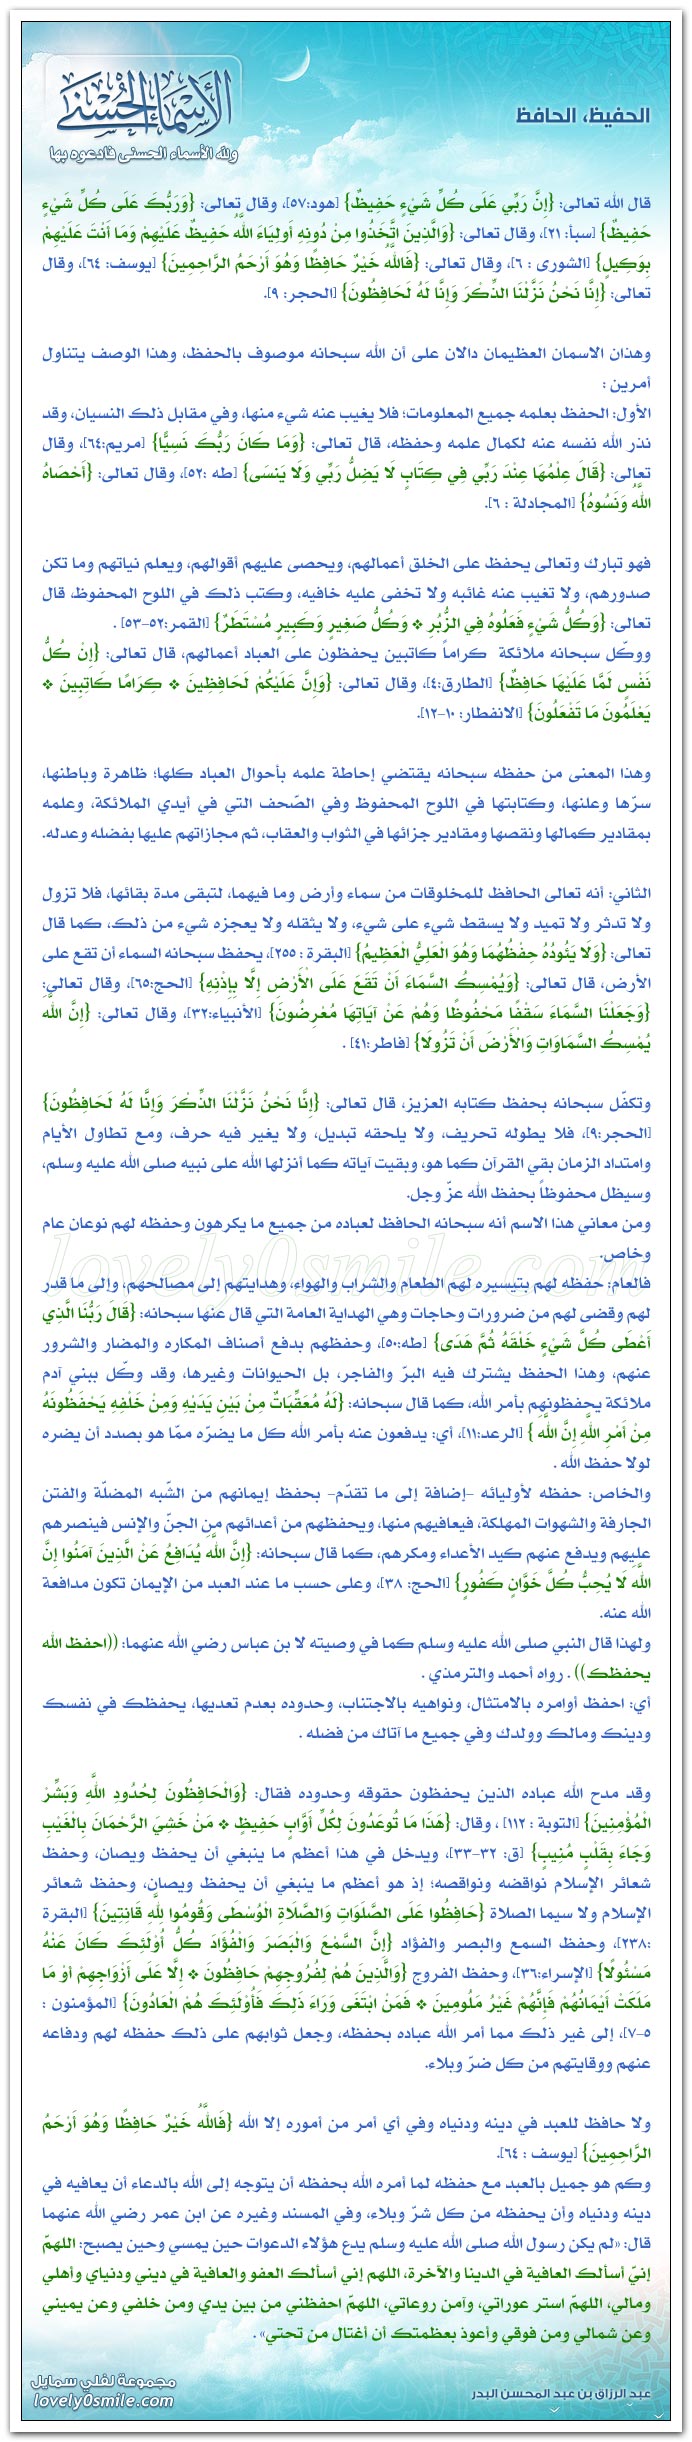 الأسماء الحسنى
ولله الأسماء الحسنى فادعوه بها
الحفيظ، الحافظ
قال الله تعالى: {إِنَّ رَبِّي عَلَى كُلِّ شَيْءٍ حَفِيظٌ} [هود:٥٧]، وقال تعالى: {وَرَبُّكَ عَلَى كُلِّ شَيْءٍ
حَفِيظٌ} [سبأ: ٢١]، وقال تعالى: {وَالَّذِينَ اتَّخَذُوا مِنْ دُونِهِ أَولِيَاءَ اللَّهُ حَفِيظٌ عَلَيْهِمْ وَمَا أَنْتَ عَلَيْهِمْ
بِوَكِيلٍ} [الشورى : ٦]، وقال تعالى: {فَاللَّه خَيْرٌ حَافِظًا وَهُوَ أَرْحَمُ الرَّاحِمِينَ} [يوسف: ٦٤]، وقال
تعالى: {إِنَّا نَحْنُ نَزَّلْنَا الذِّكْرَ وَإِنَّا لَهُ لَحَافِظُونَ} [الحجر: ٩].
وهذان الاسمان العظيمان دالان على أن الله سبحانه موصوف بالحفظ، وهذا الوصف يتناول
أمرين :
الأول: الحفظ بعلمه جميع المعلومات؛ فلا يغيب عنه شيء منها، وفي مقابل ذلك النسيان، وقد
نذر الله نفسه عنه لكمال علمه وحفظه، قال تعالى: {وَمَا كَانَ رَبُّكَ نَسِيًّا} [مريم:٦٤]، وقال
تعالى: {قَالَ عِلْمُهَا عِنْدَ رَبِّي فِي كِتَابٍ لَا يَضِلُّ رَبِّي وَلَا يَنسَى} [طه :٥٢]، وقال تعالى: {أَحْصَاهُ
اللَّهُ وَنَسُوهُ} [المجادلة : ٦].
فهو تبارك وتعالى يحفظ على الخلق أعمالهم، ويحصى عليهم أقوالهم، ويعلم نياتهم وما تكن
صدورهم، ولا تغيب عنه غائبه ولا تخفى عليه خافيه، وكتب ذلك في اللوح المحفوظ، قال
تعالى: {وَكُلُّ شَيْءٍ فَعَلُوهُ فِي الزُّبُرِ ❖ وَكُلُّ صَغِيرٍ وَكَبِيرٍ مُسْتَطَرٌ} [القمر:٥٢-٥٣] .
ووكّل سبحانه ملائكة كراماً كاتبين يحفظون على العباد أعمالهم، قال تعالى: {إِنْ كُلُّ
نَفْسٍ لَمَّا عَلَيْهَا حَافِظٌ} [الطارق:٤]، وقال تعالى: {وَإِنَّ عَلَيْكُمْ لَحَافِظِينَ ❖ كِرَامًا كَاتِبِينَ ❖
يَعْلَمُونَ مَا تَفْعَلُونَ} [الانفطار: ١٠-١٢].
وهذا المعنى من حفظه سبحانه يقتضي إحاطة علمه بأحوال العباد كلها؛ ظاهرة وباطنها،
سرّها وعلنها، وكتابتها في اللوح المحفوظ وفي الصّحف التي في أيدي الملائكة، وعلمه
بمقادير كمالها ونقصها ومقادير جزائها في الثواب والعقاب، ثم مجازاتهم عليها بفضله وعدله.
الثاني: أنه تعالى الحافظ للمخلوقات من سماء وأرض وما فيهما، لتبقى مدة بقائها، فلا تزول
ولا تدثر ولا تميد ولا يسقط شيء على شيء، ولا يثقله ولا يعجزه شيء من ذلك، كما قال
تعالى: {وَلَا يَئُودُهُ حِفْظُهُمَا وَهُوَ الْعَلِيُّ الْعَظِيمُ} [البقرة : ٢٥٥]، يحفظ سبحانه السماء أن تقع على
الأرض، قال تعالى: {وَيُمْسِكُ السَّمَاءَ أَنْ تَقَعَ عَلَى الْأَرْضِ إِلَّا بِإِذْنِهِ} [الحج:٦٥]، وقال تعالي:
{وَجَعَلْنَا السَّمَاءَ سَقْفًا مَحْفُوظًا وَهُمْ عَنْ آيَاتِهَا مُعْرِضُونَ} [الأنبياء:٣٢]، وقال تعالى: {إِنَّ اللَّهَ
يُمْسِكُ السَّمَاوَاتِ وَالْأَرْضَ أَنْ تَزُولَا} [فاطر:٤١] .
وتكفّل سبحانه بحفظ كتابه العزيز، قال تعالى: {إِنَّا نَحْنُ نَزَّلْنَا الذِّكْرَ وَإِنَّا لَهُ لَحَافِظُونَ}
[الحجر:٩]، فلا يطوله تحريف، ولا يلحقه تبديل، ولا يغير فيه حرف، ومع تطاول الأيام
وامتداد الزمان بقي القرآن كما هو، وبقيت آياته كما أنزلها الله على نبيه صلى الله عليه وسلم،
وسيظل محفوظاً بحفظ الله عزّ وجل.
ومن معاني هذا الاسم أنه سبحانه الحافظ لعباده من جميع ما يكرهون وحفظه لهم نوعان عام
وخاص.
lovely0smile.com
فالعام: حفظه لهم بتيسيره لهم الطعام والشراب والهواء، وهدايتهم إلى مصالحهم، وإلى ما قدر
لهم وقضى لهم من ضرورات وحاجات وهي الهداية العامة التي قال عنها سبحانه: {قَالَ رَبُّنَا الَّذِي
أَعْطَى كُلَّ شَيْءٍ خَلْقَهُ ثُمَّ هَدَى} [طه:٥٠]، وحفظهم بدفع أصناف المكاره والمضار والشرور
عنهم، وهذا الحفظ يشترك فيه البرّ والفاجر، بل الحيوانات وغيرها، وقد وكّل ببني آدم
ملائكة يحفظونهم بأمر الله، كما قال سبحانه: {لَهُ مُعَقِّبَاتٌ مِنْ بَيْنِ يَدَيْهِ وَمِنْ خَلْفِهِ يَحْفَظُونَهُ
مِنْ أَمْرِ اللَّهِ إِنَّ اللَّه } [الرعد:١١]، أي: يدفعون عنه بأمر الله كل ما يضرّه ممّا هو بصدد أن يضره
لولا حفظ الله .
والخاص: حفظه لأوليائه -إضافة إلى ما تقدّم- بحفظ إيمانهم من الشّبه المضلّة والفتن
الجارفة والشهوات المهلكة، فيعافيهم منها، ويحفظهم من أعدائهم من الجنّ والإنس فينصرهم
عليهم ويدفع عنهم كيد الأعداء ومكرهم، كما قال سبحانه: {إِنَّ اللَّه يُدَافِعُ عَنْ الَّذِينَ آمَنُوا إِنَّ
اللَّهَ لَا يُحِبُّ كُلَّ خَوَّانٍ كَفُورٍ} [الحج: ٣٨]، وعلى حسب ما عند العبد من الإيمان تكون مدافعة
الله عنه.
ولهذا قال النبي صلى الله عليه وسلم كما في وصيته لا بن عباس رضي الله عنهما: ((احفظ الله
يحفظك)) . رواه أحمد والترمذي .
أي: احفظ أوامره بالامتثال، ونواهيه بالاجتناب، وحدوده بعدم تعديها، يحفظك في نفسك
ودينك ومالك وولدك وفي جميع ما آتاك من فضله .
وقد مدح الله عباده الذين يحفظون حقوقه وحدوده فقال: {وَالْحَافِظُونَ لِحُدُودِ اللَّهِ وَبَشِّرْ
الْمُؤْمِنِينَ} [التوبة : ١١٢] ، وقال: {هَذَا مَا تُوعَدُونَ لِكُلِّ أَوَّابٍ حَفِيظٍ ❖ مَنْ خَشِيَ الرَّحْمَانَ بِالْغَيْبِ
وَجَاءَ بِقَلْبٍ مُنِيبٍ} [ق: ٣٢-٣٣]، ويدخل في هذا أعظم ما ينبغي أن يحفظ ويصان، وحفظ
شعائر الإسلام نواقضه ونواقصه؛ إذ هو أعظم ما ينبغي أن يحفظ ويصان، وحفظ شعائر
الإسلام ولا سيما الصلاة {حَافِظُوا عَلَى الصَّلَوَاتِ وَالصَّلَاةِ الْوُسْطَى وَقُومُوا لِلَّهِ قَانِتِينَ} [البقرة
:٢٣٨]، وحفظ السمع والبصر والفؤاد {إِنَّ السَّمْعَ وَالْبَصَرَ وَالْفُؤَادَ كُلُّ أُوْلَئِكَ كَانَ عَنْهُ
مَسْئُولًا} [الإسراء:٣٦]، وحفظ الفروج {وَالَّذِينَ هُمْ لِفُرُوجِهِمْ حَافِظُونَ ❖ إِلَّا عَلَى أَزْوَاجِهِمْ أوْ مَا
مَلَكَتْ أَيْمَانُهُمْ فَإِنَّهُمْ غَيْرُ مَلُومِينَ ❖ فَمَنْ ابْتَغَى وَرَاءَ ذَلِكَ فَأُوْلَئِكَ هُمْ الْعَادُونَ} [المؤمنون :
٥-٧]، إلى غير ذلك مما أمر الله عباده بحفظه، وجعل ثوابهم على ذلك حفظه لهم ودفاعه
عنهم ووقايتهم من كل ضرّ وبلاء.
ولا حافظ للعبد في دينه ودنياه وفي أي أمر من أموره إلا الله {فَاللَّهُ خَيْرٌ حَافِظًا وَهُوَ أَرْحَمُ
الرَّاحِمِينَ} [يوسف : ٦٤].
وكم هو جميل بالعبد مع حفظه لما أمره الله بحفظه أن يتوجه إلى الله بالدعاء أن يعافيه في
دينه ودنياه وأن يحفظه من كل شرّ وبلاء، وفي المسند وغيره عن ابن عمر رضي الله عنهما
قال: «لم يكن رسول الله صلى الله عليه وسلم يدع هؤلاء الدعوات حين يمسي وحين يصبح: اللهمّ
إنيّ أسألك العافية في الدينا والآخرة، اللهم إني أسألك العفو والعافية في ديني ودنياي وأهلي
ومالي، اللهمّ استر عوراتي، وآمن روعاتي، اللهمّ احفظني من بين يدي ومن خلفي وعن يميني
وعن شمالي ومن فوقي وأعوذ بعظمتك أن أغتال من تحتي» .
عبد الرزاق بن عبد المحسن البدر
مجموعة لفلي سمايل
lovely0smile.com